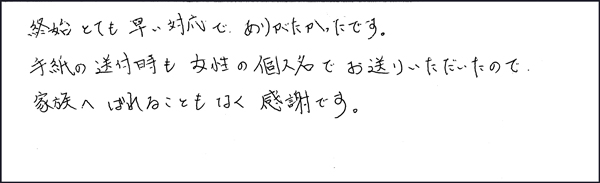 終始とても早い対応で ありがたかったです。
手紙の送付時も 女性の個人名で お送りいただいたので
家族へ ばれることもなく 感謝です。